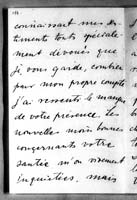 connaissant mes sen-
timents tout spéciale-
ment dévoués que
je vous garde, combien
pour mon propre compte
j'ai ressenti le manque
de votre présence. Les
nouvelles moins bonnes
concernants votre
santée m'on vivement
inquiétées, mais